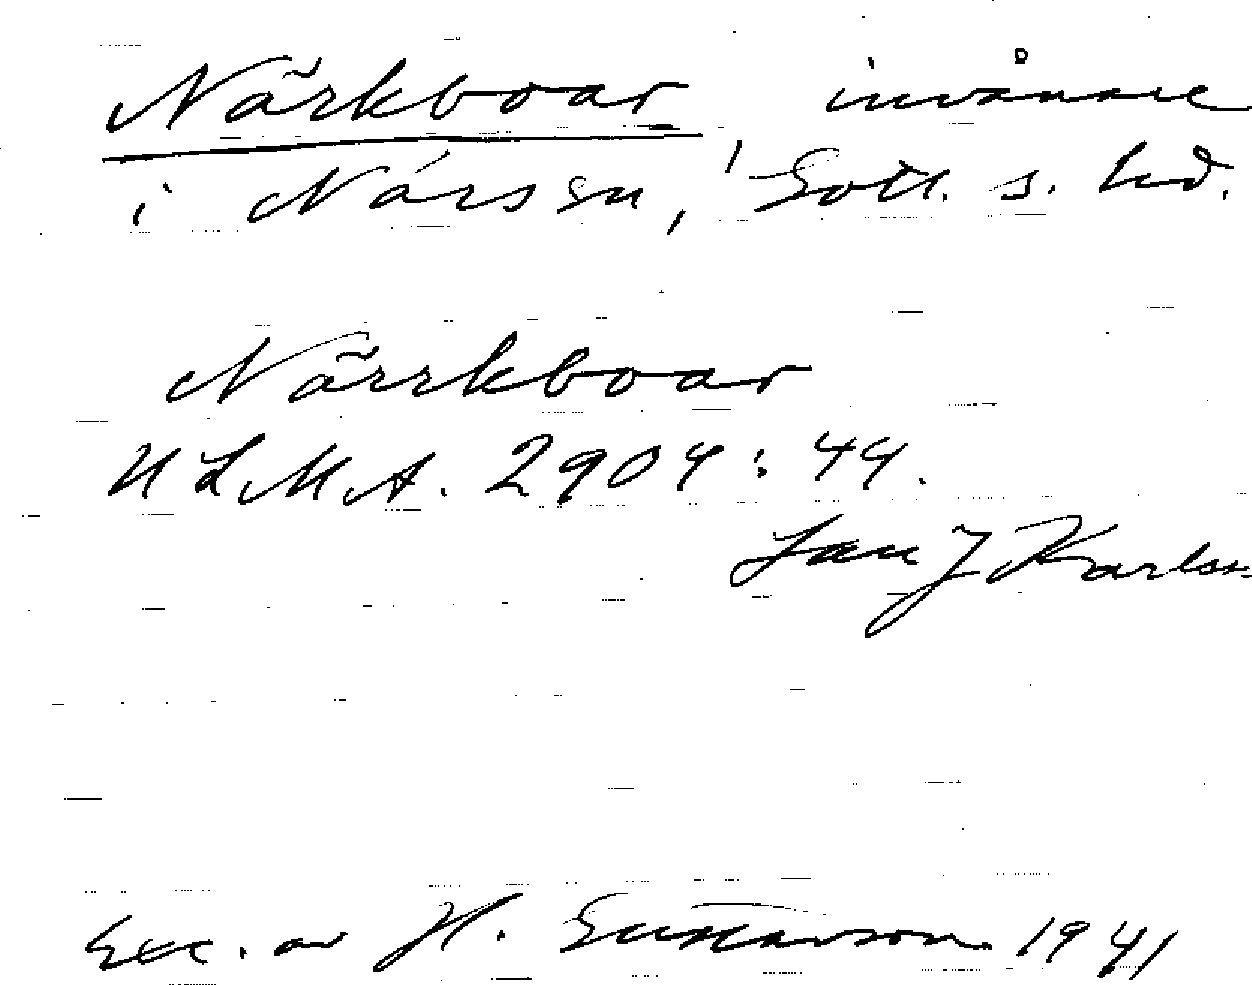 Närkboar, invånare
i Närsen, Gotl. s. hd.
Närrkboar
ULMA. 2904:44.
Lars J Karlsson
Exc. av H. Gustavson 1941